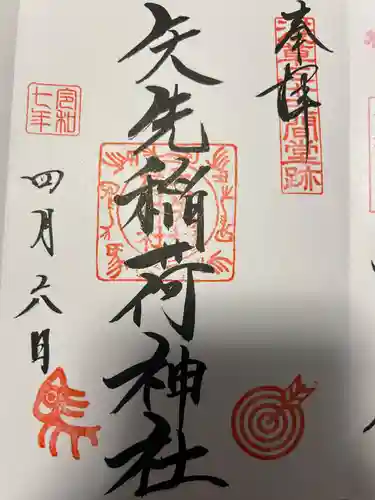 奉拝
浅草三十三間堂跡
矢先稲荷神社
令和
七年
四月六日